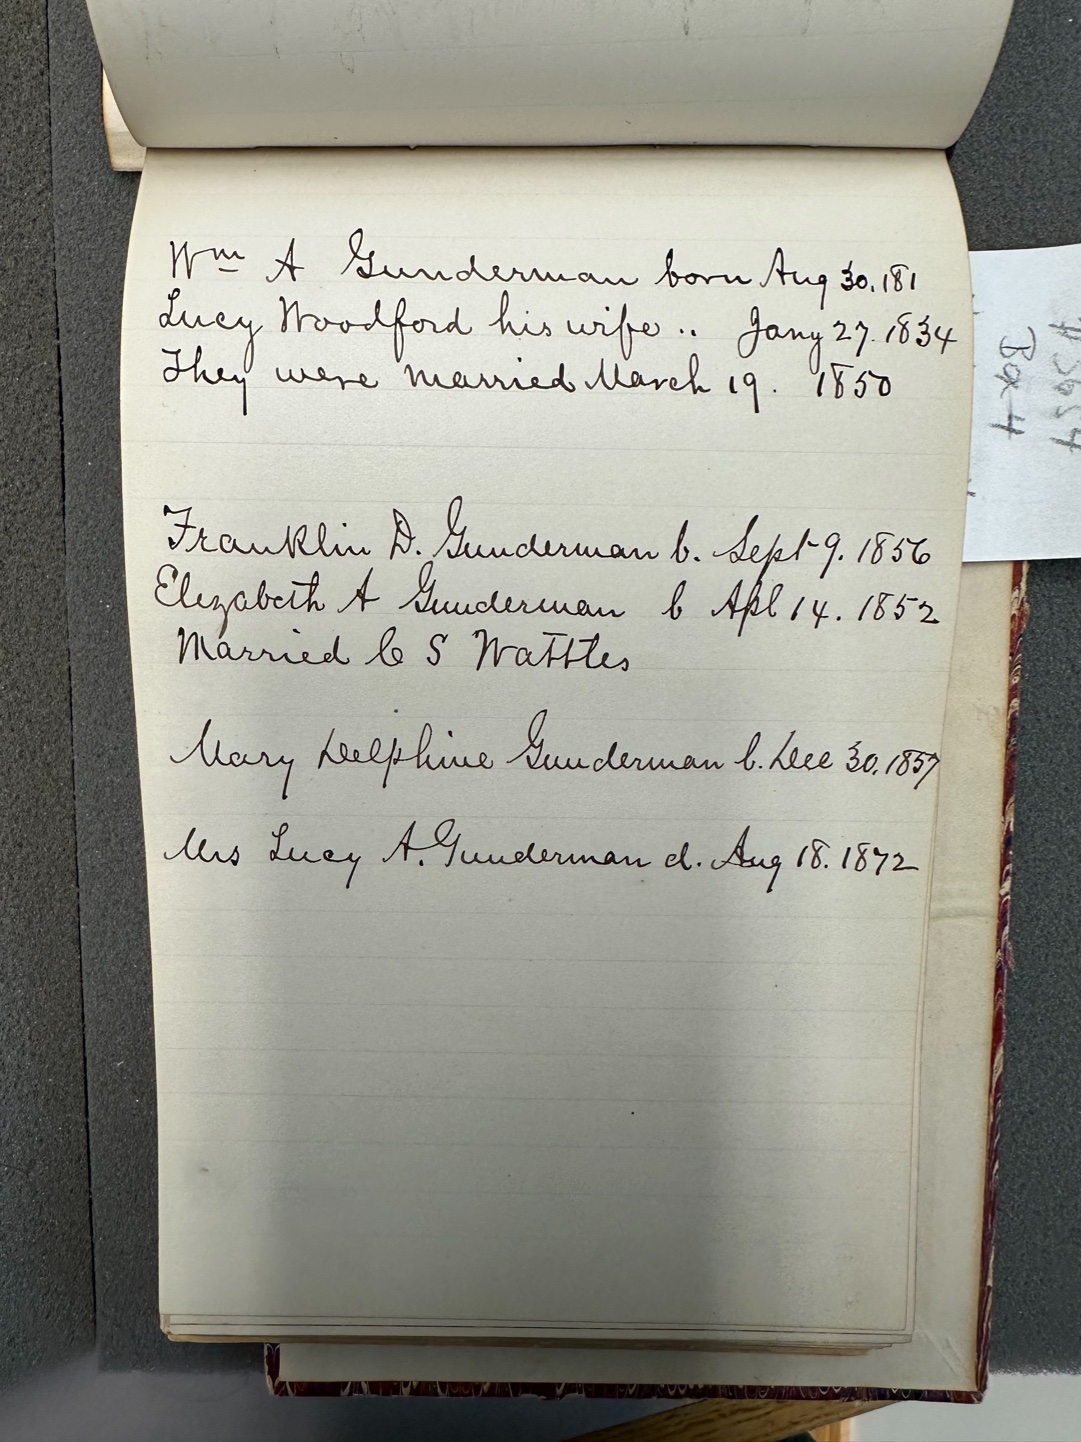 Wm A Gunderman born Aug 30, 181
Lucy Woodford his wife .. Jany 27. 1834
They were married March 19. 1850
Franklin D. Gunderman b. Sept 9. 1856
Elizabeth A Gunderman b Apl 14. 1852
Married C S Wattles
Mary Delphine Gunderman b. Dec 30, 1857
Mrs Lucy A. Gunderman d. Aug 18. 1872
Box 4